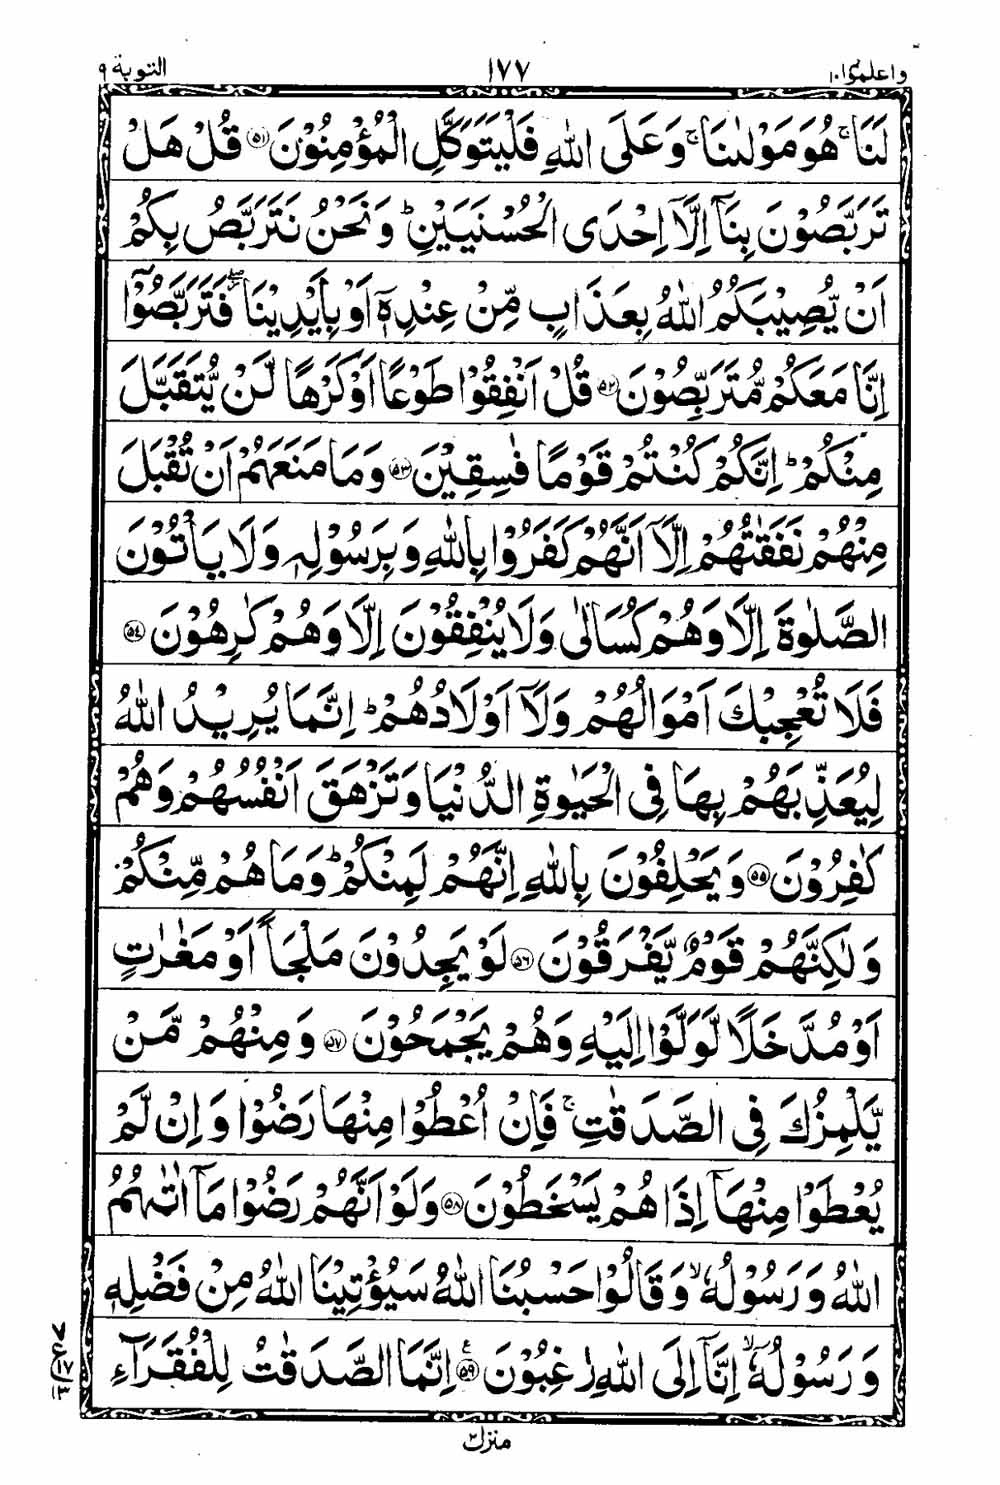 واعلموا ١٠ ١٧٧ التوبة ٩
لَنَا ۚ هُوَ مَوْلٰىنَا ۚ وَعَلَى اللّٰهِ فَلْيَتَوَكَّلِ الْمُؤْمِنُوْنَ ﴿٥١﴾ قُلْ هَلْ
تَرَبَّصُوْنَ بِنَآ اِلَّآ اِحْدَى الْحُسْنَيَيْنِ ؕ وَنَحْنُ نَتَرَبَّصُ بِكُمْ
اَنْ يُّصِيْبَكُمُ اللّٰهُ بِعَذَابٍ مِّنْ عِنْدِهٖٓ اَوْ بِاَيْدِيْنَا ۖ فَتَرَبَّصُوْٓا
اِنَّا مَعَكُمْ مُّتَرَبِّصُوْنَ ﴿٥٢﴾ قُلْ اَنْفِقُوْا طَوْعًا اَوْ كَرْهًا لَّنْ يُّتَقَبَّلَ
مِنْكُمْ ؕ اِنَّكُمْ كُنْتُمْ قَوْمًا فٰسِقِيْنَ ﴿٥٣﴾ وَمَا مَنَعَهُمْ اَنْ تُقْبَلَ
مِنْهُمْ نَفَقٰتُهُمْ اِلَّآ اَنَّهُمْ كَفَرُوْا بِاللّٰهِ وَبِرَسُوْلِهٖ وَلَا يَاْتُوْنَ
الصَّلٰوةَ اِلَّا وَهُمْ كُسَالٰى وَلَا يُنْفِقُوْنَ اِلَّا وَهُمْ كٰرِهُوْنَ ﴿٥٤﴾
فَلَا تُعْجِبْكَ اَمْوَالُهُمْ وَلَآ اَوْلَادُهُمْ ؕ اِنَّمَا يُرِيْدُ اللّٰهُ
لِيُعَذِّبَهُمْ بِهَا فِى الْحَيٰوةِ الدُّنْيَا وَتَزْهَقَ اَنْفُسُهُمْ وَهُمْ
كٰفِرُوْنَ ﴿٥٥﴾ وَيَحْلِفُوْنَ بِاللّٰهِ اِنَّهُمْ لَمِنْكُمْ ؕ وَمَا هُمْ مِّنْكُمْ
وَلٰكِنَّهُمْ قَوْمٌ يَّفْرَقُوْنَ ﴿٥٦﴾ لَوْ يَجِدُوْنَ مَلْجَاً اَوْ مَغٰرٰتٍ
اَوْ مُدَّخَلًا لَّوَلَّوْا اِلَيْهِ وَهُمْ يَجْمَحُوْنَ ﴿٥٧﴾ وَمِنْهُمْ مَّنْ
يَّلْمِزُكَ فِى الصَّدَقٰتِ ۚ فَاِنْ اُعْطُوْا مِنْهَا رَضُوْا وَاِنْ لَّمْ
يُعْطَوْا مِنْهَآ اِذَا هُمْ يَسْخَطُوْنَ ﴿٥٨﴾ وَلَوْ اَنَّهُمْ رَضُوْا مَآ اٰتٰىهُمُ
اللّٰهُ وَرَسُوْلُهٗ ۙ وَقَالُوْا حَسْبُنَا اللّٰهُ سَيُؤْتِيْنَا اللّٰهُ مِنْ فَضْلِهٖ
وَرَسُوْلُهٗٓ ۙ اِنَّآ اِلَى اللّٰهِ رٰغِبُوْنَ ﴿٥٩﴾ اِنَّمَا الصَّدَقٰتُ لِلْفُقَرَآءِ
منزل ٢